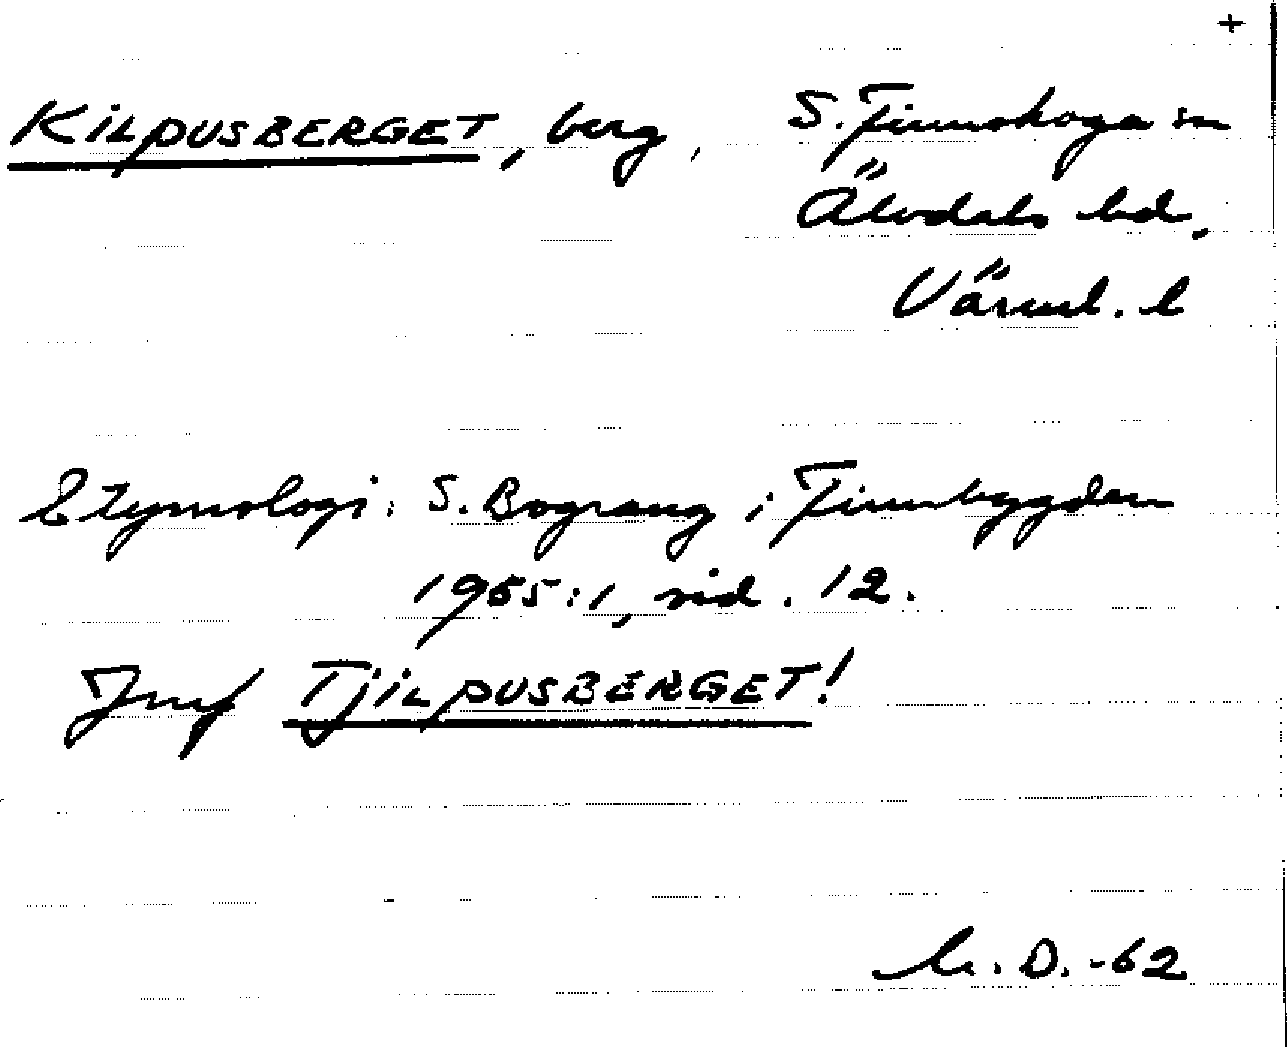 +
KILPUSBERGET, berg, S. Finnskoga sn
Älvdals hd,
Värml. l
Etymologi: S. Bograng i Finnbygden
1965:1, sid. 12.
Jmf TJILPUSBERGET!
D. -62